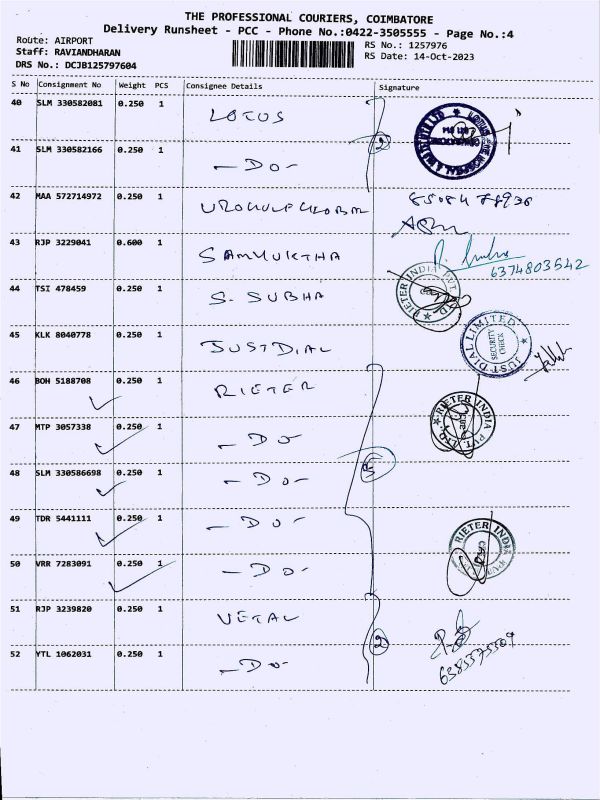 THE PROFESSIONAL COURIERS, COIMBATORE
Delivery Runsheet - PCC - Phone No.:0422-3505555 - Page No.:4
Route: AIRPORT
RS No.: 1257976
Staff: RAVIANDHARAN
RS Date: 14-Oct-2023
DRS No.: DCJB125797604
S No Consignment No Weight PCS Consignee Details Signature
40 SLM 330582081 0.250 1 LOTUS
41 SLM 330582166 0.250 1 -DO- 2
42 MAA 572714972 0.250 1
43 RJP 3229041 0.600 1 SAMYUKTHA 6374803542
44 TSI 478459 0.250 1 S. SUBHA RIETER INDIA PVT LTD
45 KLK 8040778 0.250 1 JUSTDIAL JUST DIAL LIMITED SECURITY CHECK
46 BOH 5188708 0.250 1 RIETER RIETER INDIA PVT. LTD.
47 MTP 3057338 0.250 1 -DO
48 SLM 330586698 0.250 1 -DO- 5
49 TDR 5441111 0.250 1 -DO- RIETER INDIA
50 VRR 7283091 0.250 1 -DO-
51 RJP 3239820 0.250 1 VETAL
52 YTL 1062031 0.250 1 -DO- 2